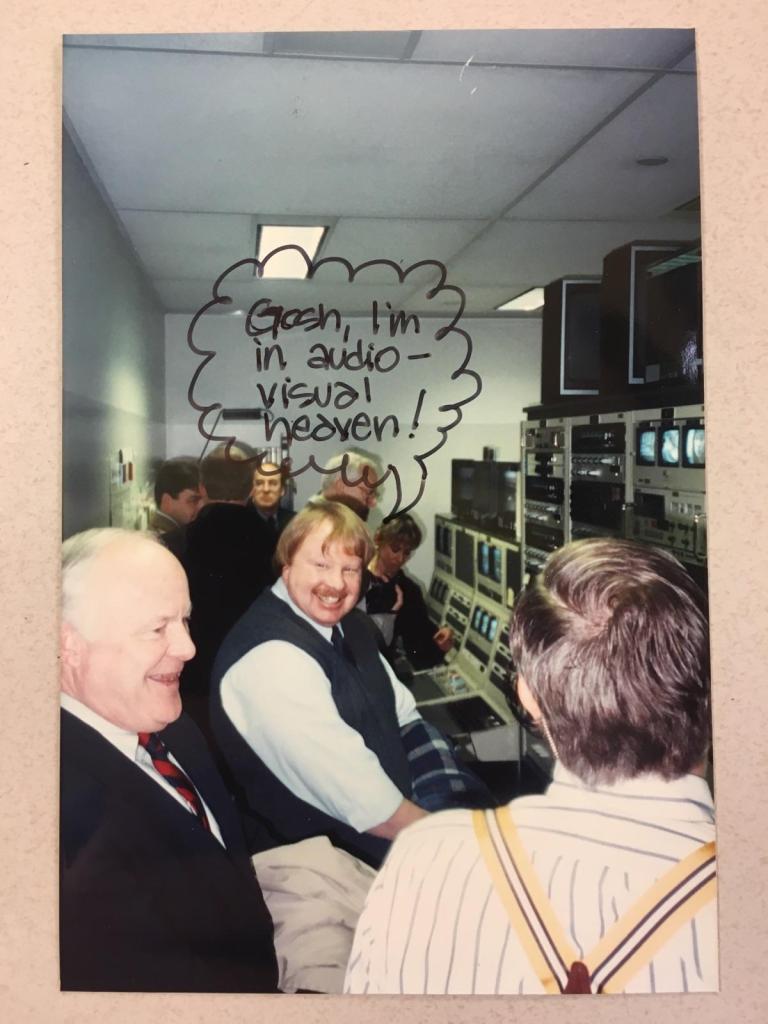 Gosh, I'm
in audio-
visual
heaven!